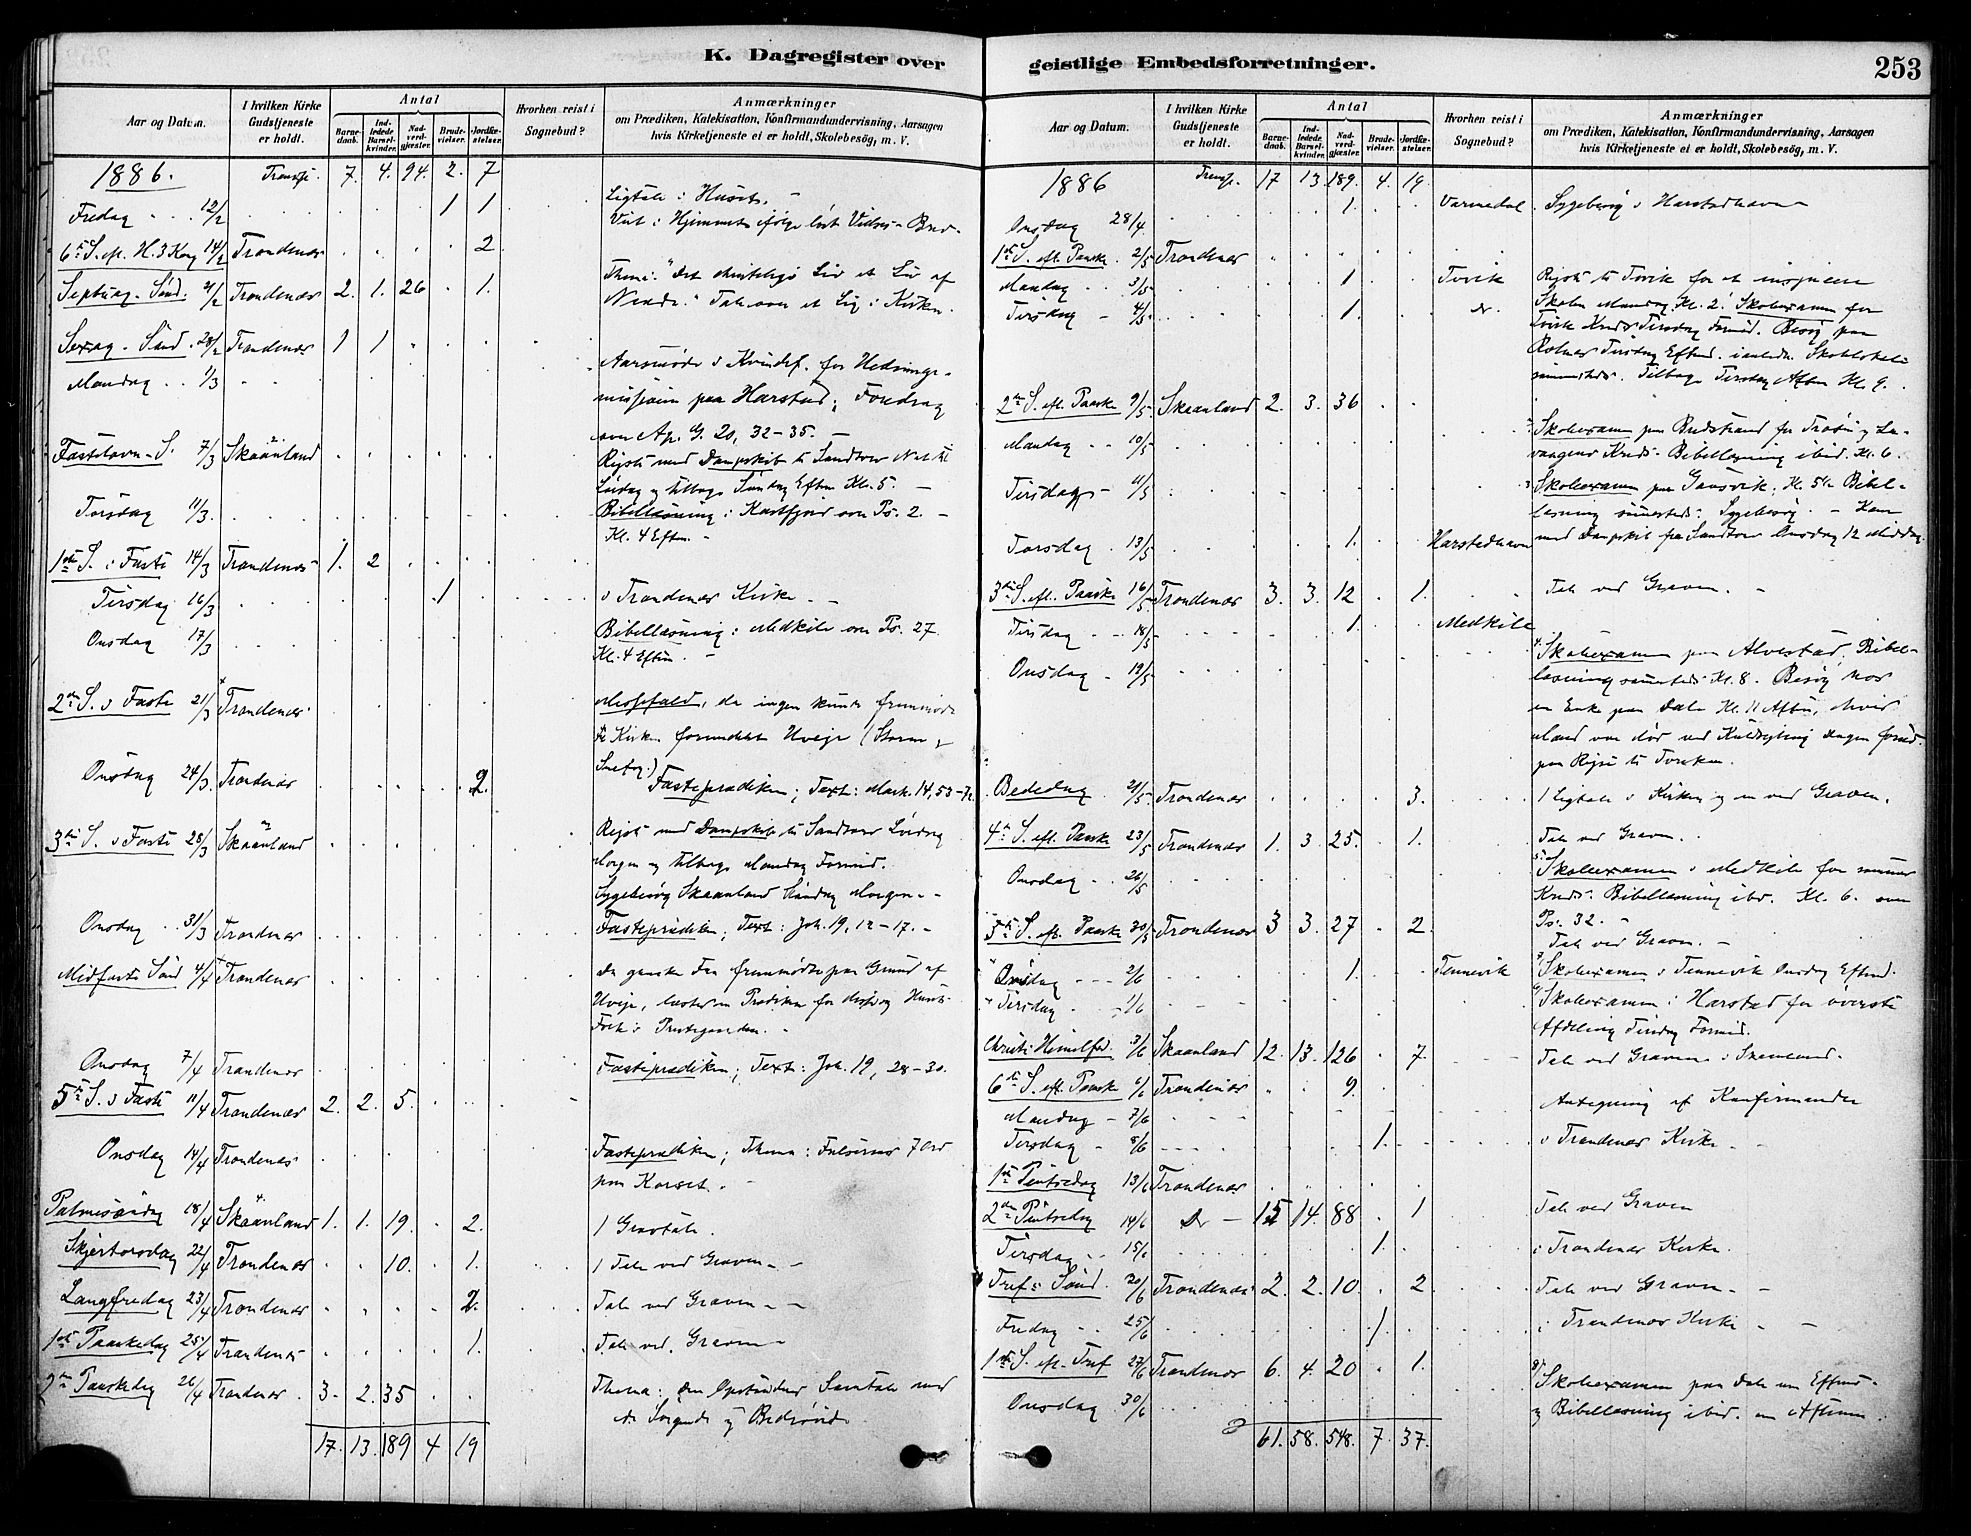 K. Dagregister over
Aar og Datum.
I hvilken Kirke Gudstjeneste er holdt.
Antal
Barnedaab.
Indledede Barselkvinder.
Nadverdgjæster.
Brudevielser.
Jordfæstelser.
Hvorhen reist i Sognebud?
Anmærkninger
om Prædiken, Katekisation, Konfirmandundervisning, Aarsagen
hvis Kirketjeneste ei er holdt, Skolebesög, m. V.
1886. Transp. 7. 4. 94. 2. 7
Fredag 12/2 1 1 Ligtale i Huset. –
Viet i Hjemmet ifølge løst Vielses-Brev.
6te S. ef. H.3 Kong 14/2 Trondenæs 2
Septuag. Sønd. 21/2 Trondenæs 2. 1. 26 1. Thema: "Det christelige Liv et Liv af
Naade." Tale over et Lig i Kirken.
Sexag. Sønd. 28/2 Trondenæs 1 1
Mandag 1/3 Aarsmøde i Kvindef. for Hedninge-
missionen paa Harstad; Foredrag
over Ap. G. 20, 32-35. –
Fastelavn-S. 7/3 Skaanland Rejste med Dampskib til Sandtorv Nat til
Lørdag og tilbage Søndag Eften Kl. 5. –
Torsdag 11/3. Bibellæsning i Kastfjord over Ps. 2. –
Kl. 4 Eftm. –
1ste S. i Faste 14/3 Trondenæs 1. 2
Tirsdag 16/3 1 i Trondenæs Kirke –
Onsdag 17/3 Bibellæsning i Medkile over Ps. 27.
Kl. 4 Eftm. –
2den S. i Faste 21/3 Trondenæs Messefald, da ingen kunde fremmøde
til Kirken formedelst Uveir (Storm &
Snefog.)
Onsdag 24/3. Trondenæs 2. Fasteprædiken; Text: Mark. 14, 53-72.
3die S. i Faste 28/3 Skaanland Rejste med Dampskib til Sandtorv Lørdag
Morgen og tilbage Mandag Formid.
Sygebesøg Skaanland Søndag Morgen. –
Onsdag 31/3 Trondenæs Fasteprædiken; Text: Joh. 19, 12-17. –
Midfaste Sønd 4/4 Trondenæs Da ganske Faa fremmødte paa Grund af
Uveir, læstes en Prædiken for
Folk i Præstegaarden. –
Onsdag 7/4 Trondenæs Fasteprædiken; Text: Joh. 19, 28-30.
5te S. i Faste 11/4 Trondenæs 2. 2. 5.
Onsdag 14/4 Trondenæs Fasteprædiken; Thema: Frelserens 7 Ord
paa Korset. –
Palmesøndag 18/4 Skaanland 1. 1. 19. 2. 1 Gravtale.
Skjærtorsdag 22/4 Trondenæs 10. 1. 1 Tale ved Graven. –
Langfredag 23/4 Trondenæs 2. Tale ved Graven. –
1ste Paaskedag 25/4 Trondenæs 1. Tale ved Graven
2den Paaskedag 26/4 Trondenæs 3. 2. 35 Thema: Den Opstandnes Samtale med
de Sørgende og Bedrøvede
17. 13. 189 4 19
geistlige Embedsforretninger.
253
Aar og Datum.
I hvilken Kirke Gudstjeneste er holdt.
Antal
Barnedaab.
Indledede Barselkvinder.
Nadverdgjæster.
Brudevielser.
Jordfæstelser.
Hvorhen reist i Sognebud?
Anmærkninger
om Prædiken, Katekisation, Konfirmandundervisning, Aarsagen
hvis Kirketjeneste ei er holdt, Skolebesög, m. V.
1886 Transp. 17 13. 189. 4. 19.
Onsdag 28/4 1. Varmedal Sygebesøg i Harstadhavn
1ste S. eft. Paaske 2/5 Trondenæs
Mandag 3/5 1 Tovik Rejste til Tovik for at inspicere
Tirsdag 4/5 1. do. Skolen Mandag Kl. 2. Skoleexamen for
Tovik Kreds Tirsdag Formid. Besøg paa
Rolnæs Tirsdag Eftmd.
Tilbage Tirsdag Aften Kl. 9.
2den S. eft. Paaske 9/5 Skaanland 2. 3. 36
Mandag 10/5 Skoleexamen paa Budstrand for
vangens Kreds. Bibellæsning ibid. Kl. 6.
Tirsdag 11/5 Skoleexamen paa Gausvik. Kl. 5 Bibel-
læsning sammesteds. Sygebesøg. – Kom
Torsdag 13/5 1. Harstadhavn med Dampskib fra Sandtorv Onsdag 12 Middag.
3die S. eft. Paaske 16/5 Trondenæs 3. 3. 12 1. Tale ved Graven. –
Tirsdag 18/5 1. Medkile
Onsdag 19/5 4. Skoleexamen paa Alvestad, Bibel-
læsning sammesteds Kl. 8. Besøg hos
en Enke paa Dale Kl. 11 Aften, hvis
Mand var død ved Kuldsejling Dagen forud
paa Rejse til
Bededag 21/5 Trondenæs 3. 1 Ligtale i Kirken og en ved Graven.
4de S. eft. Paaske 23/5 Trondenæs 1. 3. 25. 1. Tale ved Graven.
Onsdag 26/5 5. Skoleexamen i Medkile for samme
Kreds. Bibellæsning ibd. Kl. 6. over
Ps. 32. –
5te S. eft. Paaske 30/5 Trondenæs 3 3. 27 2. Tale ved Graven. –
Onsdag 2/6 1. Tennevik Skoleexamen i Tennevik Onsdag Eftmd.
Tirsdag 1/6 Skoleexamen i Harstad for øverste
Afdeling Tirsdag Formid.
Christi Himmelfd. 3/6 Skaanland 12. 13. 126 7. Tale ved Graven i Skaanland.
6te S. eft. Paaske 6/6 Trondenæs 9.
Mandag 7/6 Antegning af Konfirmander
Tirsdag 8/6 1. i Trondenæs Kirke –
1ste Pintsedag 13/6 Trondenæs
2den Pintsedag 14/6 Do – 15 14. 88 1 Tale ved Graven
Tirsdag 15/6 1. i Trondenæs Kirke.
Tref. Sønd. 20/6 Trondenæs 2. 2. 10. 2 Tale ved Graven. –
Fredag 25/6 1. i Trondenæs Kirke –
1ste S. ef. Tref 27/6 Trondenæs 6. 4. 20 1.
Onsdag 30/6 8) Skoleexamen paa Dale om Eftmd.
og Bibellæsning ibid. om Aftenen.
61. 58. 548. 7. 37.